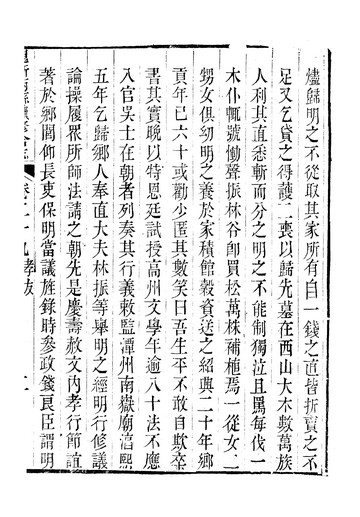 燼歸明之不從取其家所有自一錢之直皆折賣之不
足又乞貸之得護二喪以歸先墓在西山大木數萬族
人利其直悉斬而分之明之不能制獨泣且罵每伐一
木仆輒號慟聲振林谷卽買松萬株補植焉一從女二
甥女俱幼明之養於家積館穀資送之紹興二十年鄉
貢年已六十或勸少匿其數笑曰吾生平不敢自欺卒
書其實晚以特恩廷試授高州文學年逾八十法不應
入官吳士在朝者列奏其行義敕監潭州南嶽廟淳熙
五年乞歸鄉人奉直大夫林振等舉明之經明行修議
論操履罷所師法請之朝先是慶壽赦文內孝行節誼
著於鄉閭仰長吏保明當議旌錄時參政錢良臣謂明
卷二十九孝友